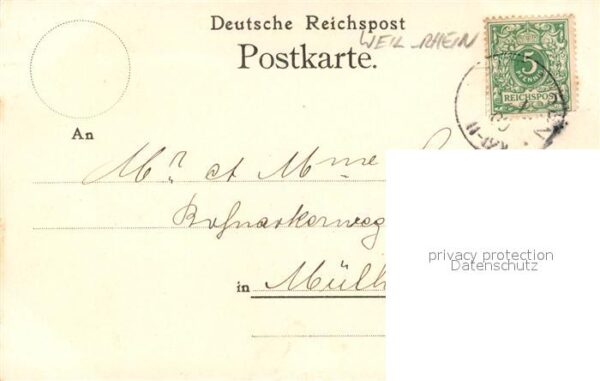 Deutsche Reichspost
WEIL-RHEIN
Postkarte.
5
PFENNIG
REICHSPOST
An
Mr. et Mme
privacy protection
Datenschutz
in Mülh